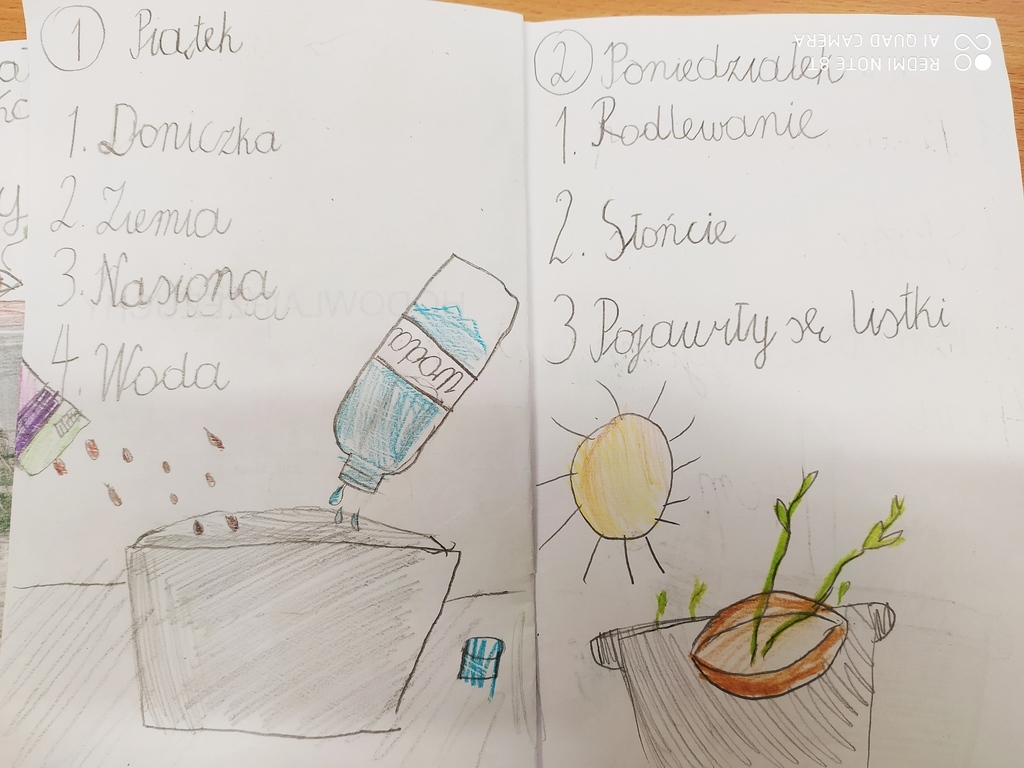 1 Piątek
1. Doniczka
2. Ziemia
3. Nasiona
4. Woda
Woda
2 Poniedziałek
1. Podlewanie
2. Słońcie
3 Pojawiły się listki
REDMI NOTE 8T
AI QUAD CAMERA